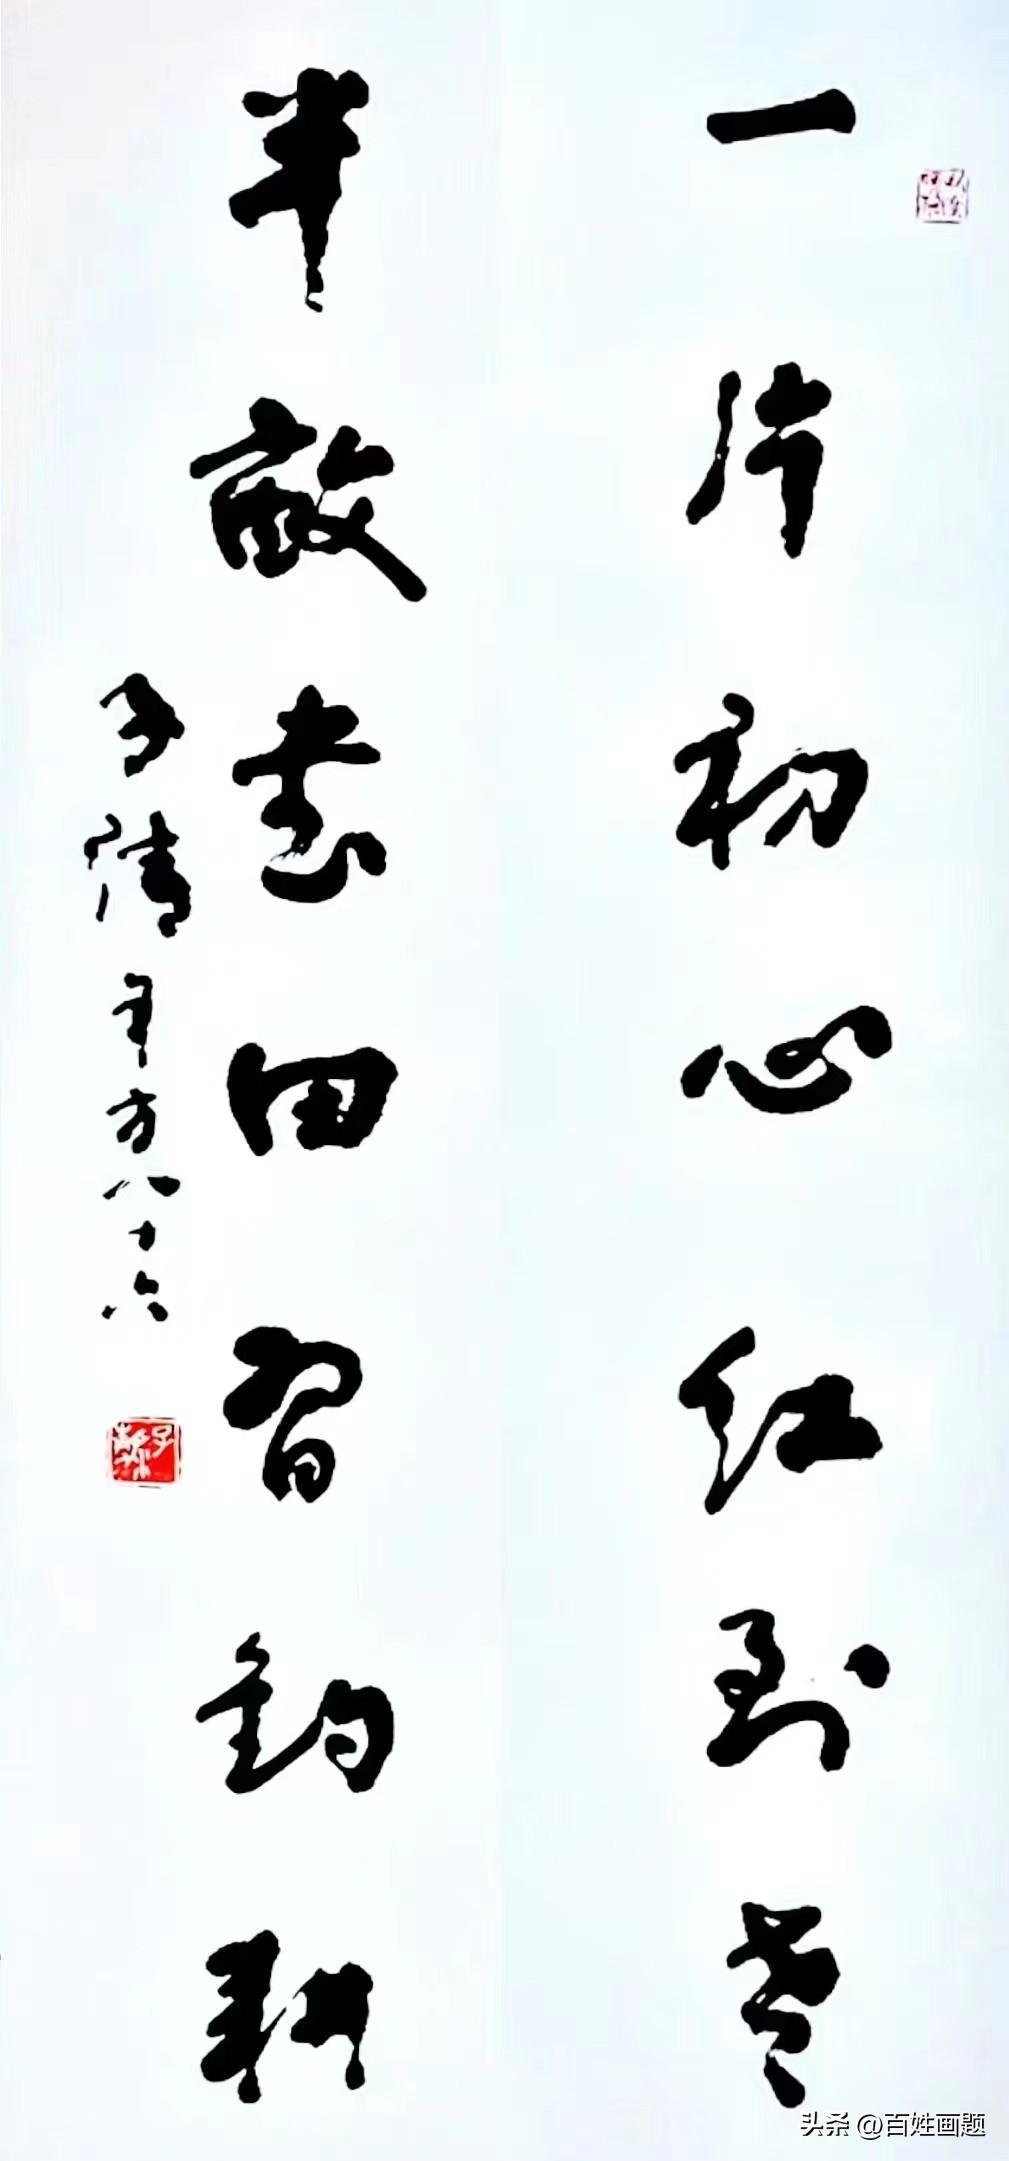 一片初心红到老
半畝書田習釣耕
子清年方八十六
头条 @百姓画题